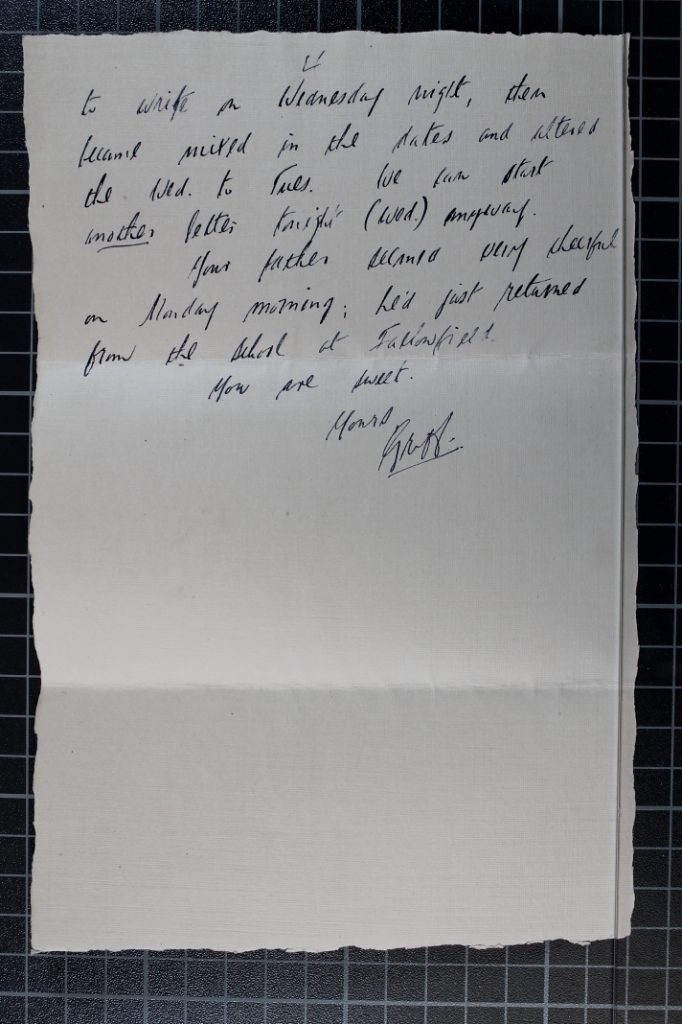 4
to write on Wednesday night, then
became mixed in the dates and altered
the Wed. to Tues. We can start
another letter tonight (Wed.) anyway.
Your father seemed very cheerful
on Monday morning; he'd just returned
from the school at Fallowfield.
You are sweet.
Yours